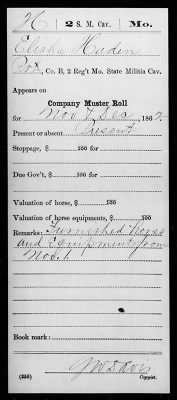 H | 2 S. M. Cav. | Mo.
Elisha Haden
Pvt, Co. B, 2 Reg't Mo. State Militia Cav.
Appears on
Company Muster Roll
for Nov & Dec, 1862
Present or absent Present
Stoppage, $ 100 for
Due Gov't, $ 100 for
Valuation of horse, $ 100
Valuation of horse equipments, $ 100
Remarks: Furnished Horse
and Equipments from
Nov. 1.
Book mark:
J W Davis
(358) Copyist.